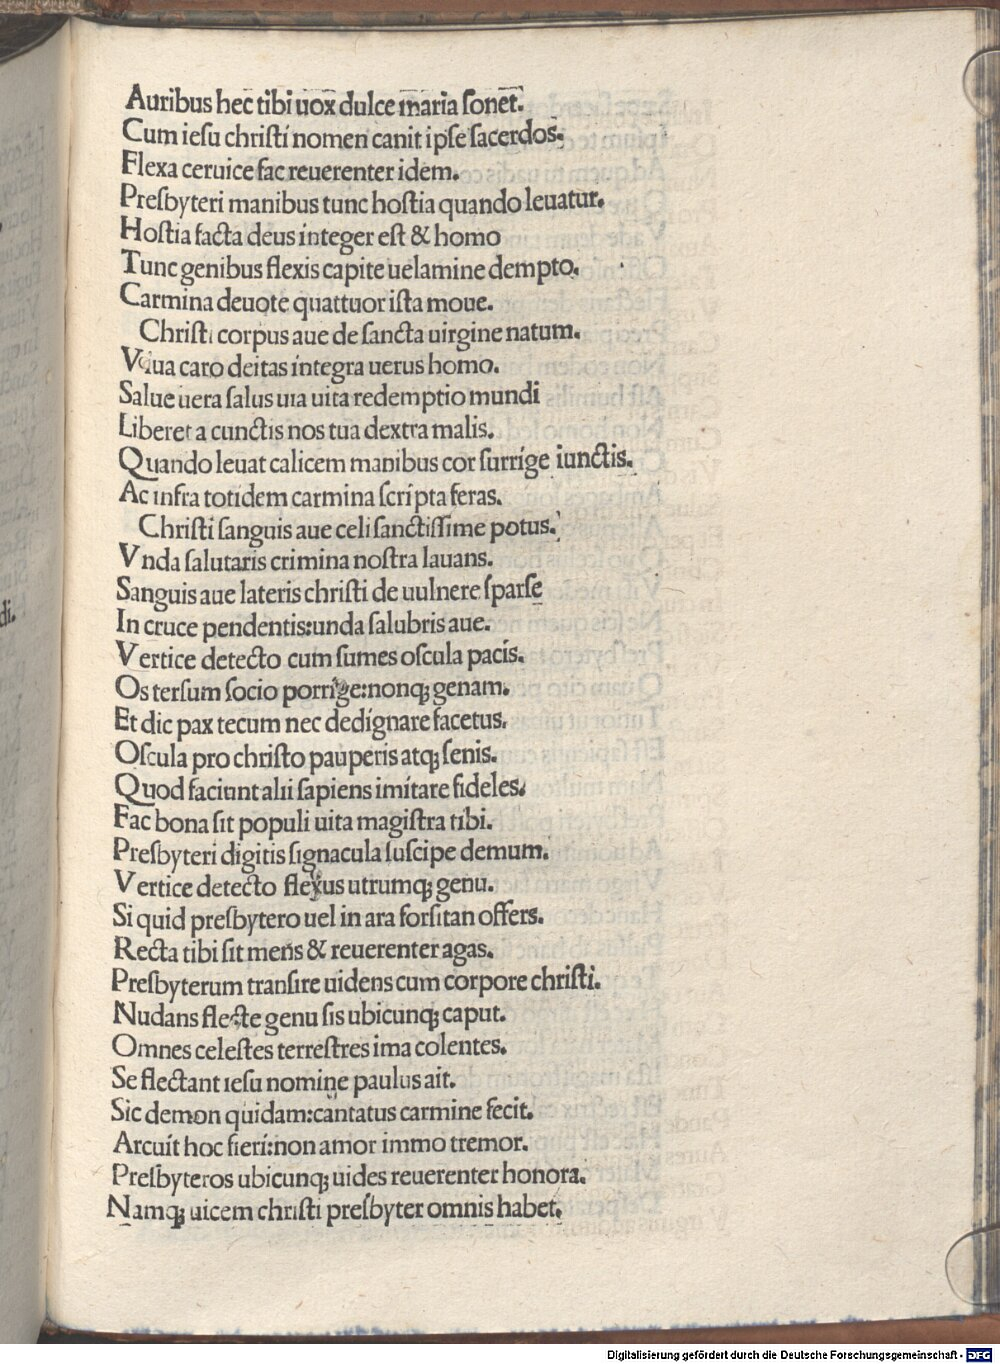 Auribus hec tibi uox dulce maria ſonet.
Cum ieſu chriſti nomen canit ipſe ſacerdos.
Flexa ceruice fac reuerenter idem.
Preſbyteri manibus tunc hoſtia quando leuatur.
Hoſtia facta deus integer eſt & homo
Tunc genibus flexis capite uelamine dempto.
Carmina deuote quattuor iſta moue.
Chriſti corpus aue de ſancta uirgine natum.
Viua caro deitas integra uerus homo.
Salue uera ſalus uia uita redemptio mundi
Liberet a cunctis nos tua dextra malis.
Quando leuat calicem manibus cor ſurrige iunctis.
Ac infra totidem carmina ſcripta feras.
Chriſti ſanguis aue celi ſanctiſſime potus.
Vnda ſalutaris crimina noſtra lauans.
Sanguis aue lateris chriſti de uulnere ſparſe
In cruce pendentis:unda ſalubris aue.
Vertice detecto cum ſumes oſcula pacis.
Os terſum ſocio porrige:nonqꝫ genam.
Et dic pax tecum nec dedignare facetus.
Oſcula pro chriſto pauperis atqꝫ ſenis.
Quod faciunt alii ſapiens imitare fideles.
Fac bona ſit populi uita magiſtra tibi.
Preſbyteri digitis ſignacula ſuſcipe demum.
Vertice detecto flexus utrumqꝫ genu.
Si quid preſbytero uel in ara forſitan offers.
Recta tibi ſit mens & reuerenter agas.
Preſbyterum tranſire uidens cum corpore chriſti.
Nudans flecte genu ſis ubicunqꝫ caput.
Omnes celeſtes terreſtres ima colentes.
Se flectant ieſu nomine paulus ait.
Sic demon quidam:cantatus carmine fecit.
Arcuit hoc fieri:non amor immo tremor.
Preſbyteros ubicunqꝫ uides reuerenter honora.
Namqꝫ uicem chriſti preſbyter omnis habet.
di.
Digitalisierung gefördert durch die Deutsche Forschungsgemeinschaft - DFG